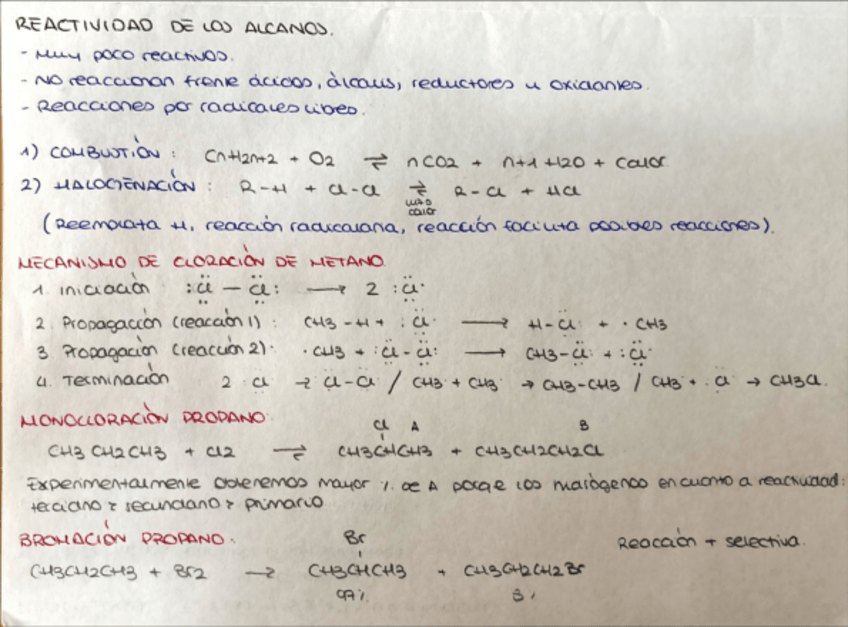 REACTIVIDAD DE LOS ALCANOS.
- Muy poco reactivos.
- No reaccionan frente ácidos, álcalis, reductores u oxidantes.
- Reacciones por radicales libes.
1) COMBUSTIÓN : CnH2n+2 + O2 ⇌ nCO2 + n+1 H2O + calor.
2) HALOGENACIÓN : R-H + Cl-Cl ⇌ R-Cl + HCl
calor
(Reemplata H, reacción radicalaria, reacción facilita posibles reacciones).
MECANISMO DE CLORACIÓN DE METANO.
1. Iniciación : :Cl — Cl: → 2 :Cl·
2. Propagación (reacción 1) : CH3 - H + :Cl· → H-Cl: + ·CH3
3. Propagación (reacción 2): ·CH3 + :Cl-Cl: → CH3-Cl: + :Cl·
4. Terminación 2 :Cl· → Cl-Cl / CH3· + CH3· → CH3-CH3 / CH3· + :Cl· → CH3Cl.
MONOCLORACIÓN PROPANO:
Cl A B
CH3 CH2 CH3 + Cl2 ⇌ CH3CHCH3 + CH3CH2CH2Cl
Experimentalmente obtenemos mayor % de A porqe los halógenos en cuanto a reactividad:
terciario > secundario > primario
BROMACIÓN PROPANO: Reacción + selectiva.
Br
CH3CH2CH3 + Br2 → CH3CHCH3 + CH3CH2CH2Br
97% 3%